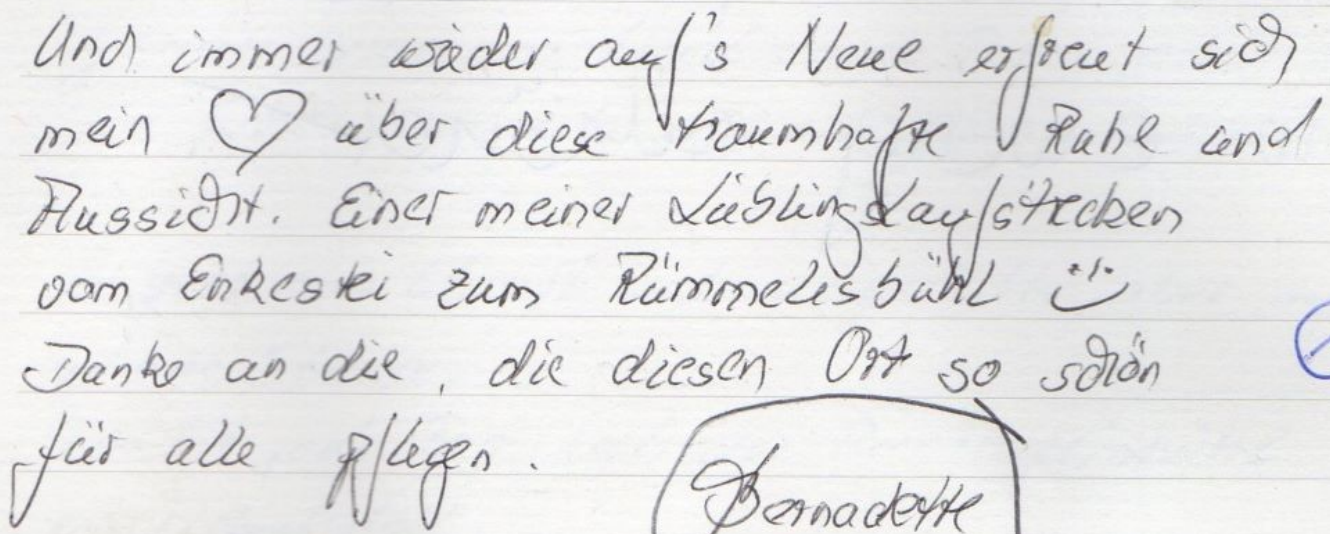 Und immer wieder auf's Neue erfreut sich
mein ♡ über diese traumhafte Ruhe und
Aussicht. Einer meiner Lieblingslaufstrecken
vom zum Rümmelesbühl
Danke an die, die diesen Ort so schön
für alle pflegen.
Bernadette